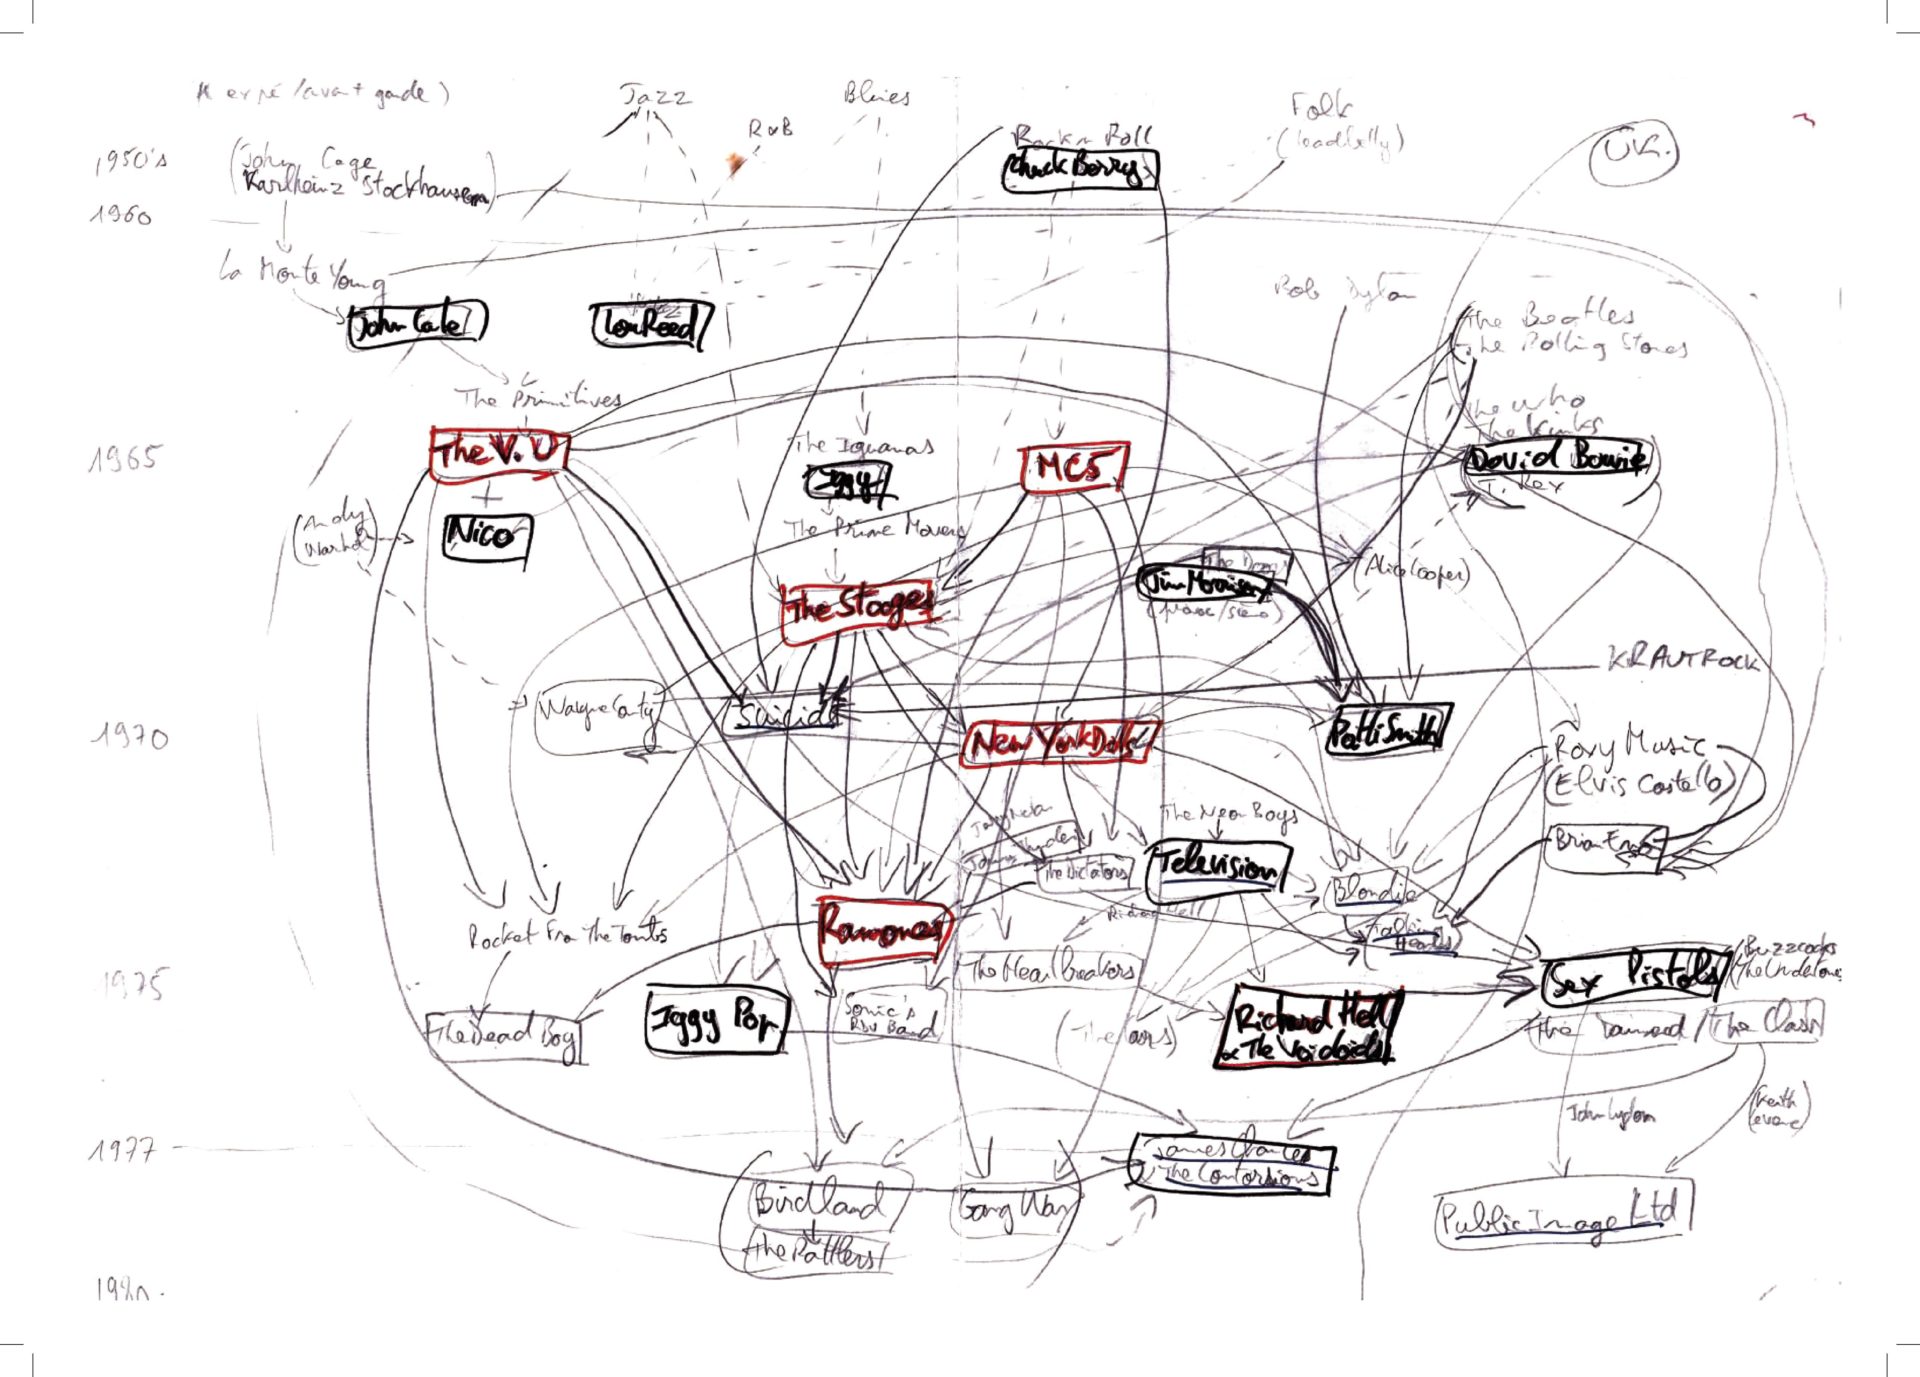 Jazz
Blues
R&B
Folk
(leadbelly)
Rock n Roll
Chuck Berry
UK.
1950's
(John Cage
Karlheinz Stockhausen)
1960
La Monte Young
John Cale
Lou Reed
Bob Dylan
The Beatles
The Rolling Stones
The Primitives
The Who
The Kinks
1965
The V.U
+
Nico
The Iguanas
Iggy
The Prime Movers
MC5
David Bowie
T. Rex
(Andy
Warhol)
The Stooges
The Doors
Jim Morrison
(Alice Cooper)
KRAUTROCK
Wayne County
Suicide
1970
New York Dolls
Patti Smith
Roxy Music
(Elvis Costello)
The Neon Boys
Brian Eno
The Dictators
Television
Blondie
Talking
Heads
Richard Hell
Ramones
Rocket From The Tombs
The Heartbreakers
Sex Pistols
(Buzzcocks
1975
The Dead Boy
Iggy Pop
Sonic's
Rdv Band
(The Cars)
Richard Hell
& The Voidoids
The Damned / The Clash
John Lydon
(Keith
Levene)
1977
James Chance
The Contorsions
Birdland
The Rattlers
Gang War
Public Image Ltd